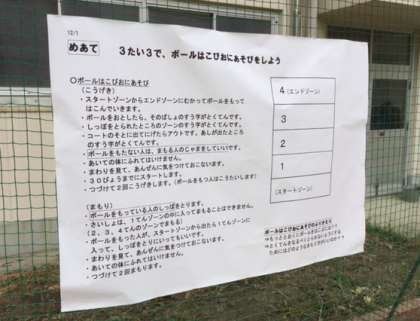 12/1
めあて 3たい3で、ボールはこびおにあそびをしよう
○ボールはこびおにあそび
(こうげき)
・スタートゾーンからエンドゾーンにむかってボールをもって
はこんでいきます。
・ボールをおとしたら、そのばしょのすう字がとくてんです。
・しっぽをとられたところのゾーンのすう字がとくてんです。
・コートのそとに出てにげたらアウトです。あしが出たところ
のすう字がとくてんです。
・ボールをもたない人は、まもる人のじゃまをしていいです。
・あいての体にふれてはいけません。
・まわりを見て、あんぜんに気をつけておこないます。
・30びょうまでにスタートします。
・つづけて2回こうげきします。(ボールをもつ人はこうたいします)
(まもり)
・ボールをもっている人のしっぽをとります。
・さいしょは、1てんゾーンの中に入ってまもることはできません。
(2、3、4てんのゾーンでまもる)
・ボールをもった人が、スタートゾーンから出たら1てんゾーンに
入って、しっぽをとりにいってもいいです。
・あいての体にふれてはいけません。
・まわりを見て、あんぜんに気をつけておこないます。
・つづけて2回まもります。
4(エンドゾーン)
3
2
1
(スタートゾーン)